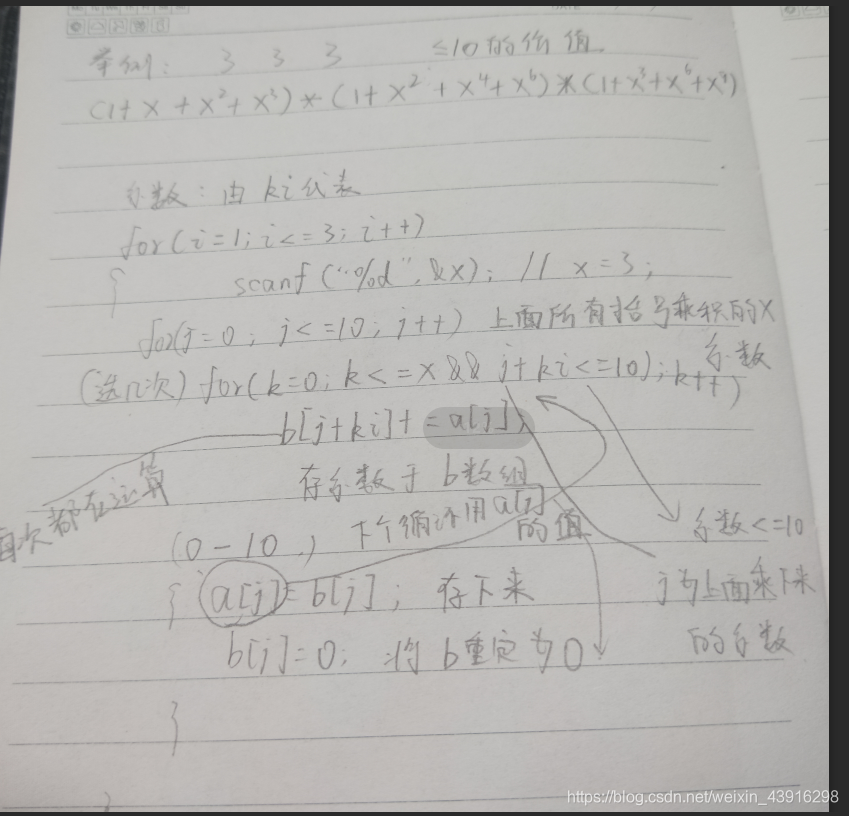 举例: 3 3 3 ≤10的价值
(1+x+x²+x³)*(1+x²+x⁴+x⁶)*(1+x³+x⁶+x⁹)
系数: 由ki代表
for(i=1;i<=3;i++)
{ scanf("%d",&x); // x=3;
for(j=0; j<=10; j++) 上面所有括号乘积的x
系数
(选几次) for(k=0; k<=x && j+ki<=10); k++)
b[j+ki]+=a[j];
存系数于b数组
每次都在这
(0-10) 下个循环用a[j]
的值
系数<=10
{ a[j]=b[j]; 存下来
j为上面乘下来
b[j]=0; 将b重定为0
的系数
}
https://blog.csdn.net/weixin_43916298